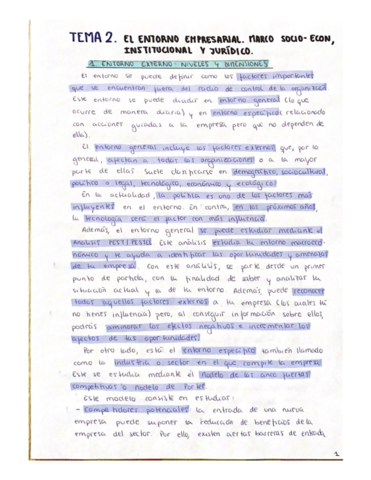 TEMA 2. EL ENTORNO EMPRESARIAL. MARCO SOCIO-ECON,
INSTITUCIONAL Y JURÍDICO.
1. ENTORNO EXTERNO: NIVELES Y DIMENSIONES
El entorno se puede definir como los factores importantes
que se encuentran fuera del radio de control de la organización
Este entorno se puede dividir en entorno general (lo que
ocurre de manera diaria) y en entorno específico, relacionado
con acciones guiadas a la empresa pero que no dependen de
ella).
El entorno general incluye los factores externos que, por lo
general, afectan a todas las organizaciones o a la mayor
parte de ellas. Suele clasificarse en demográfico, sociocultural,
político o legal, tecnológico, económico y ecológico.
En la actualidad, la política es uno de los factores más
influyentes en el entorno. En contra, en los próximos años,
la tecnología será el factor con más influencia.
Además, el entorno general se puede estudiar mediante el
Análisis PEST/PESTEL. Este análisis estudia tu entorno macroeco-
nómico y te ayuda a identificar las oportunidades y amenazas
de tu empresa. Con este análisis, se parte desde un primer
punto de partida, con la finalidad de saber y analizar tu
situación actual y a de tu entorno. Además, puede reconocer
todos aquellos factores externos a tu empresa (los cuales no
tienes influencia) pero, al conseguir información sobre ellos,
podrás aminorar los efectos negativos e incrementar los
efectos de las oportunidades.
Por otro lado, está el entorno específico también llamado
como la industria o sector en el que compite la empresa.
Este se estudia mediante el modelo de las cinco fuerzas
competitivas o modelo de Porter.
Este modelo consiste en estudiar:
- Competidores potenciales: la entrada de una nueva
empresa puede suponer la reducción de beneficios de la
empresa del sector. Por ello, existen ciertas barreras de entrada,
1